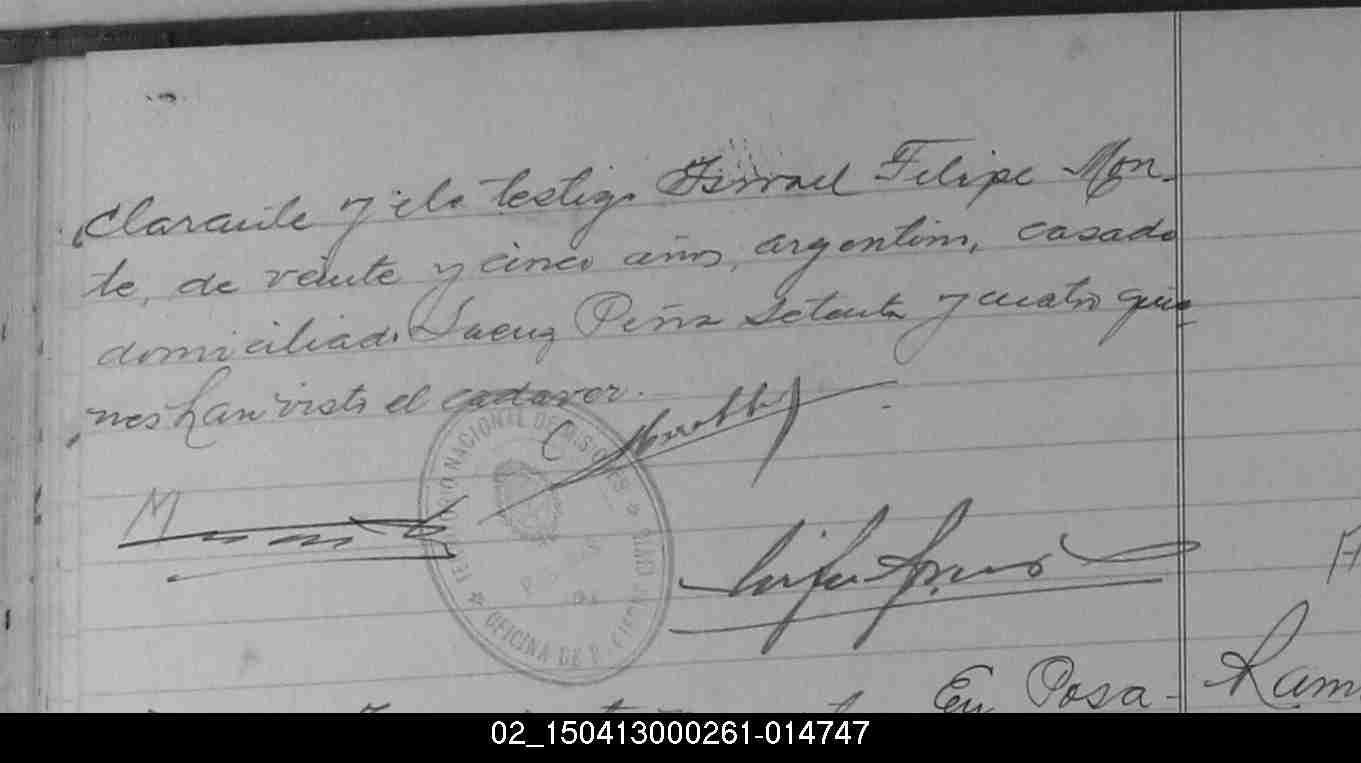 clarante y el testigo Ismael Felipe Mon-
te, de veinte y cinco años, argentino, casado
domiciliado Saenz Peña setenta y cuatro quie-
nes han visto el cadaver.
TERRITORIO NACIONAL DE MISIONES
OFICINA DE R. CIVIL
En Posa-
Ram
02_150413000261-014747